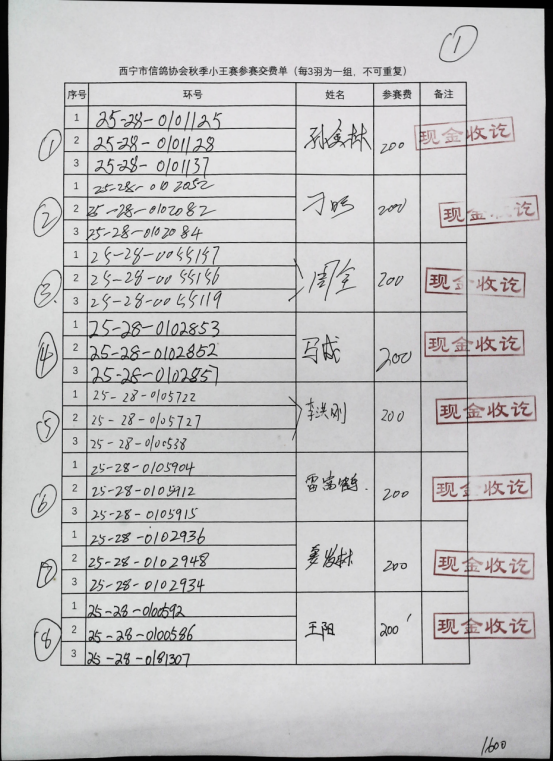 ①
西宁市信鸽协会秋季小王赛参赛交费单（每3羽为一组，不可重复）
序号 环号 姓名 参赛费 备注
① 1 25-28-0101125
2 25-28-0101128 孙 林 200 现金收讫
3 25-28-0101137
② 1 25-28-0102052
2 25-28-0102082 刁 200 现金收讫
3 25-28-0102084
③ 1 25-28-0055157
2 25-28-0055156 周全 200 现金收讫
3 25-28-0055119
④ 1 25-28-0102853
2 25-28-0102852 马成 200 现金收讫
3 25-28-0102857
⑤ 1 25-28-0105722
2 25-28-0105727 李洪刚 200 现金收讫
3 25-28-0100538
⑥ 1 25-28-0105904
2 25-28-0105912 雷富鹤. 200 现金收讫
3 25-28-0105915
⑦ 1 25-28-0102936
2 25-28-0102948 姜发林 200 现金收讫
3 25-28-0102934
⑧ 1 25-28-0100592
2 25-28-0100586 王阳 200 现金收讫
3 25-28-0181307
1600